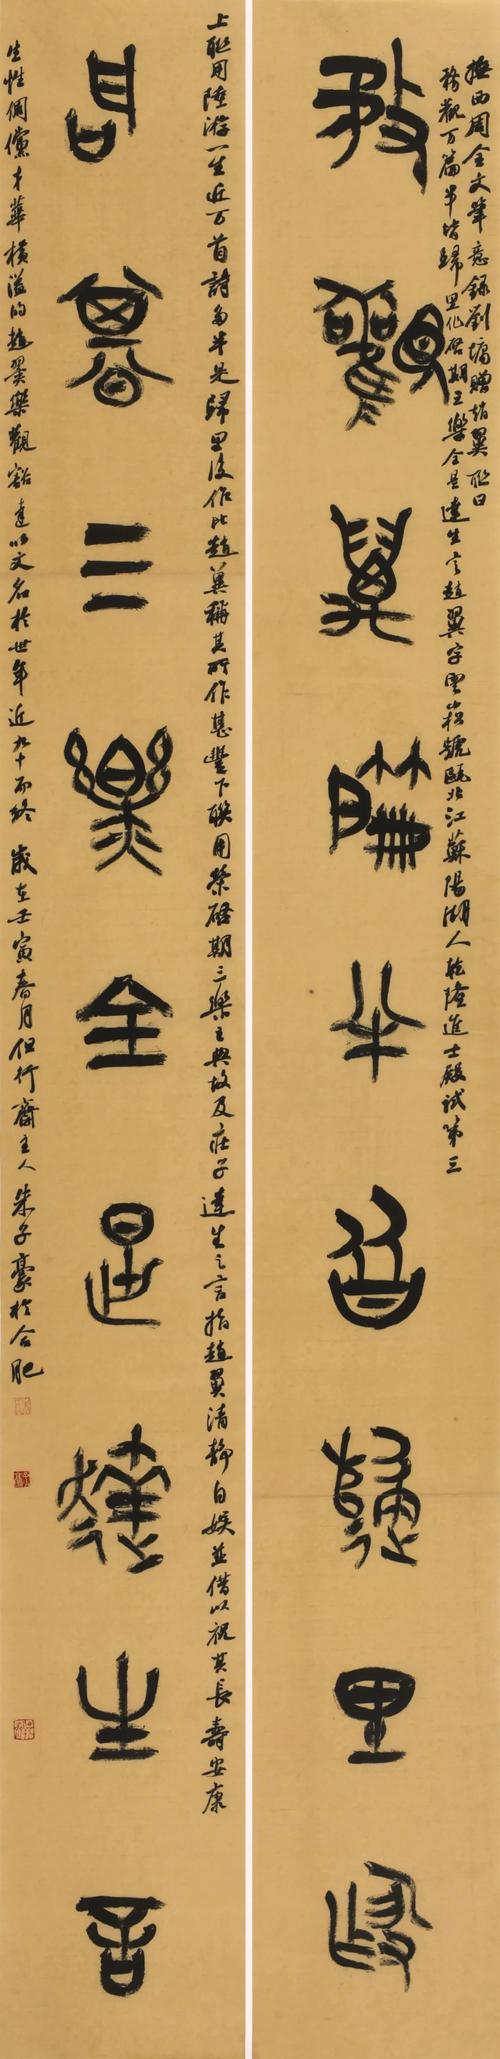 撫西周金文筆意錄劉墉贈趙翼聯曰
務觀万篇半皆歸里作啟期三樂全是達生言趙翼字雲崧號甌北江蘇陽湖人乾隆進士殿試第三
務觀萬篇半皆歸里作
上聯用陸游一生近万首詩多半是歸里後作比趙翼稱其所作甚豐下聯用榮啟期三樂之典故及莊子達生之言指趙翼清靜自娛並借以祝其長壽安康
啟期三樂全是達生言
生性倜儻才華橫溢的趙翼樂觀豁達以文名於世年近九十而終 歲在壬寅春月但行齋主人朱子豪於合肥